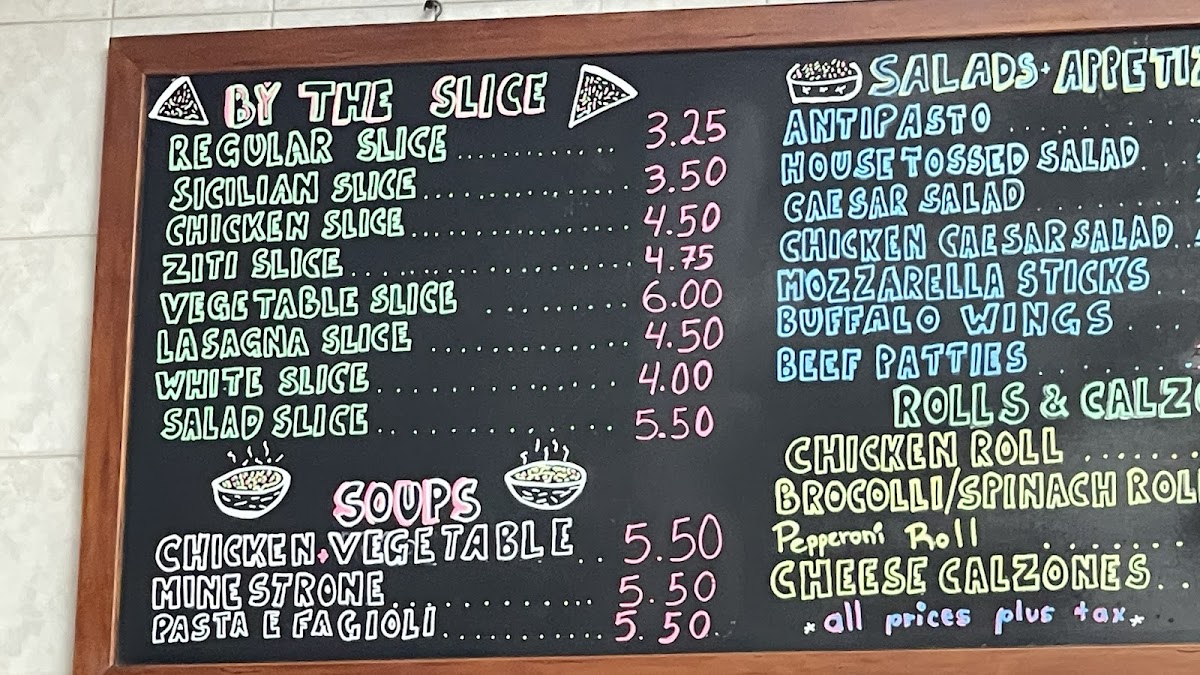 BY THE SLICE
REGULAR SLICE .............. 3.25
SICILIAN SLICE .................. 3.50
CHICKEN SLICE .................. 4.50
ZITI SLICE ...................... 4.75
VEGETABLE SLICE .......... 6.00
LASAGNA SLICE ............... 4.50
WHITE SLICE ................. 4.00
SALAD SLICE ................ 5.50
SOUPS
CHICKEN + VEGETABLE .. 5.50
MINESTRONE ............. 5.50
PASTA E FAGIOLI ............. 5.50
SALADS + 
ANTIPASTO ..........
HOUSE TOSSED SALAD ..
CAESAR SALAD .........
CHICKEN CAESAR SALAD ..
MOZZARELLA STICKS ..
BUFFALO WINGS ...
BEEF PATTIES .......
ROLLS &
CHICKEN ROLL .......
BROCOLLI/SPINACH
Pepperoni Roll ........
CHEESE CALZONES ..
*all prices plus tax*